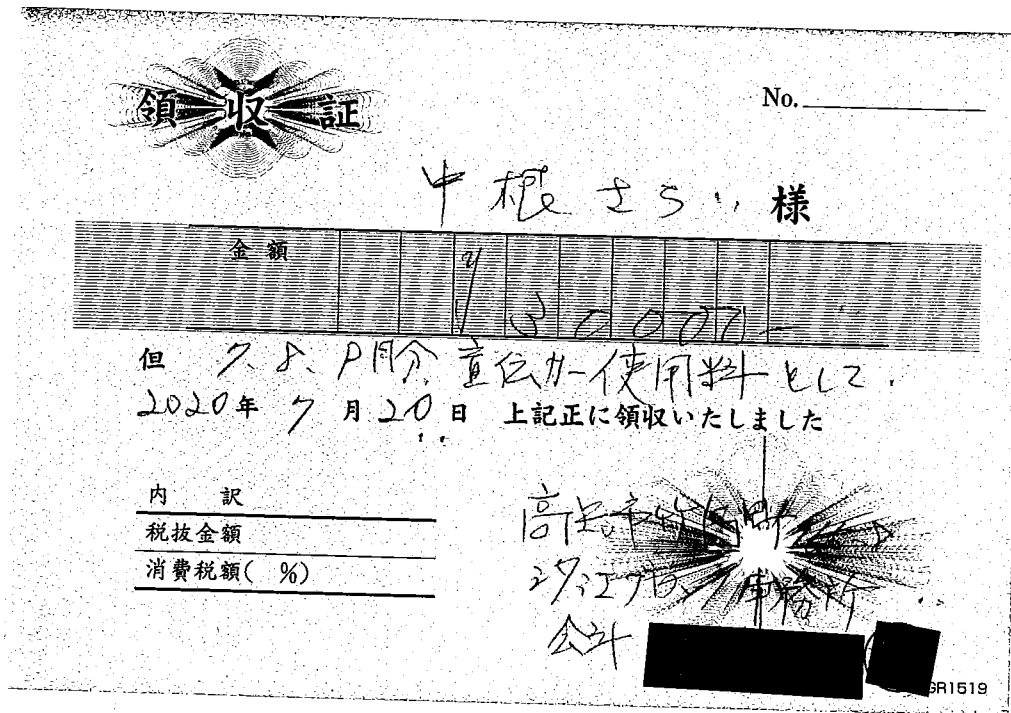 領収証
No.
中根さらい 様
金額
¥30000-
但 7、8、9月分、宣伝カー使用料として、
2020年 7月20日 上記正に領収いたしました
内訳
税抜金額
消費税額( %)
高 市
潮江ブロック事務所
会計
GR1519